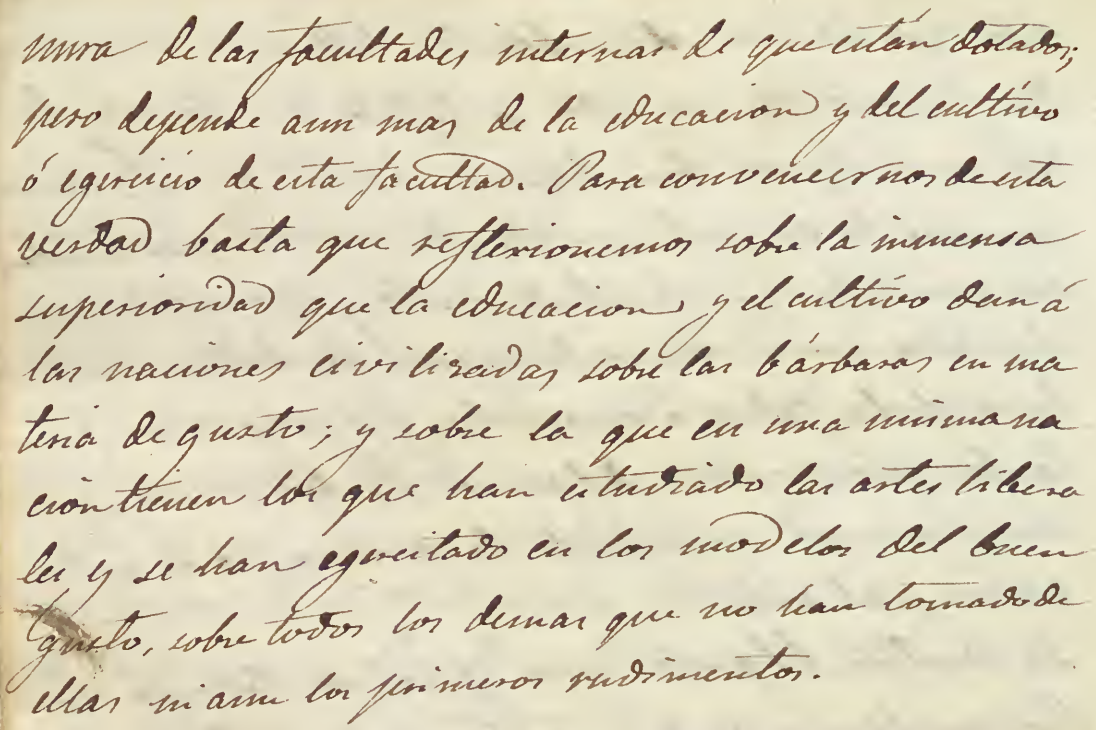 nura de las facultades internas de que están dotados;
pero depende aun mas de la educacion y del cultivo
ó egercicio de esta facultad. Para convencernos de esta
verdad basta que reflexionemos sobre la inmensa
superioridad que la educacion y el cultivo dan á
las naciones civilizadas sobre las bárbaras en ma
teria de gusto; y sobre la que en una misma na
ción tienen los que han estudiado las artes libera
les y se han egercitado en los modelos del buen
gusto, sobre todos los demas que no han tomado de
ellas ni aun los primeros rudimentos.